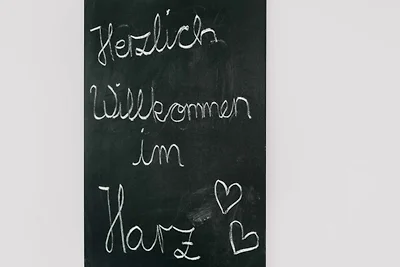 Herzlich
Willkommen
im
Harz